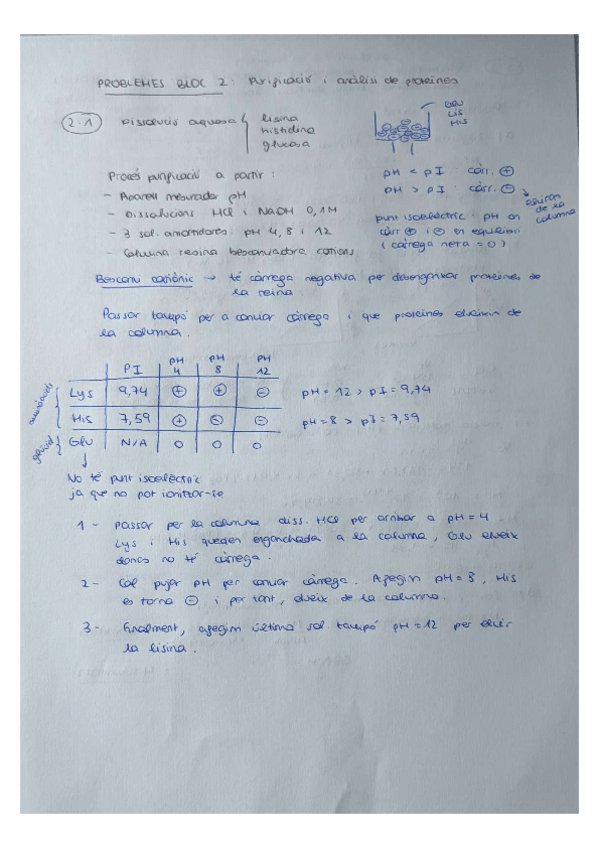 PROBLEMES BLOC 2: Purificació i anàlisi de proteïnes
2.1 Dissolució aquosa { lisina
histidina
glucosa
GLU
LIS
HIS
Procés purificació a partir:
- Aparell mesurador pH
- Dissolucions HCl i NaOH 0,1M
- 3 sol. amortidores: pH 4, 8 i 12
- Columna resina bescanviadora cations
pH < pI : càrr. ⊕
pH > pI : càrr. ⊖ → eluiran de la columna
punt isoelèctric: pH on
càrr ⊕ i ⊖ en equilibri
(càrrega neta = 0)
Bescanvi catiònic → té càrrega negativa per desenganxar proteïnes de
la reïna.
Passar tampó per a canviar càrrega i que proteïnes elueixin de
la columna.
PI pH 4 pH 8 pH 12
aminoàcids
Lys 9,74 ⊕ ⊕ ⊖
pH = 12 > pI = 9,74
His 7,59 ⊕ ⊖ ⊖
pH = 8 > pI = 7,59
Glu N/A 0 0 0
No té punt isoelèctric
ja que no pot ionitzar-se
1 - Passar per la columna diss. HCl per arribar a pH = 4
Lys i His queden enganchada a la columna, Glu elueix
doncs no té càrrega.
2 - Cal pujar pH per canviar càrrega. Afegim pH = 8, His
es torna ⊖ i per tant, elueix de la columna.
3 - Finalment, afegim última sol. tampó pH = 12 per eluir
la lisina.